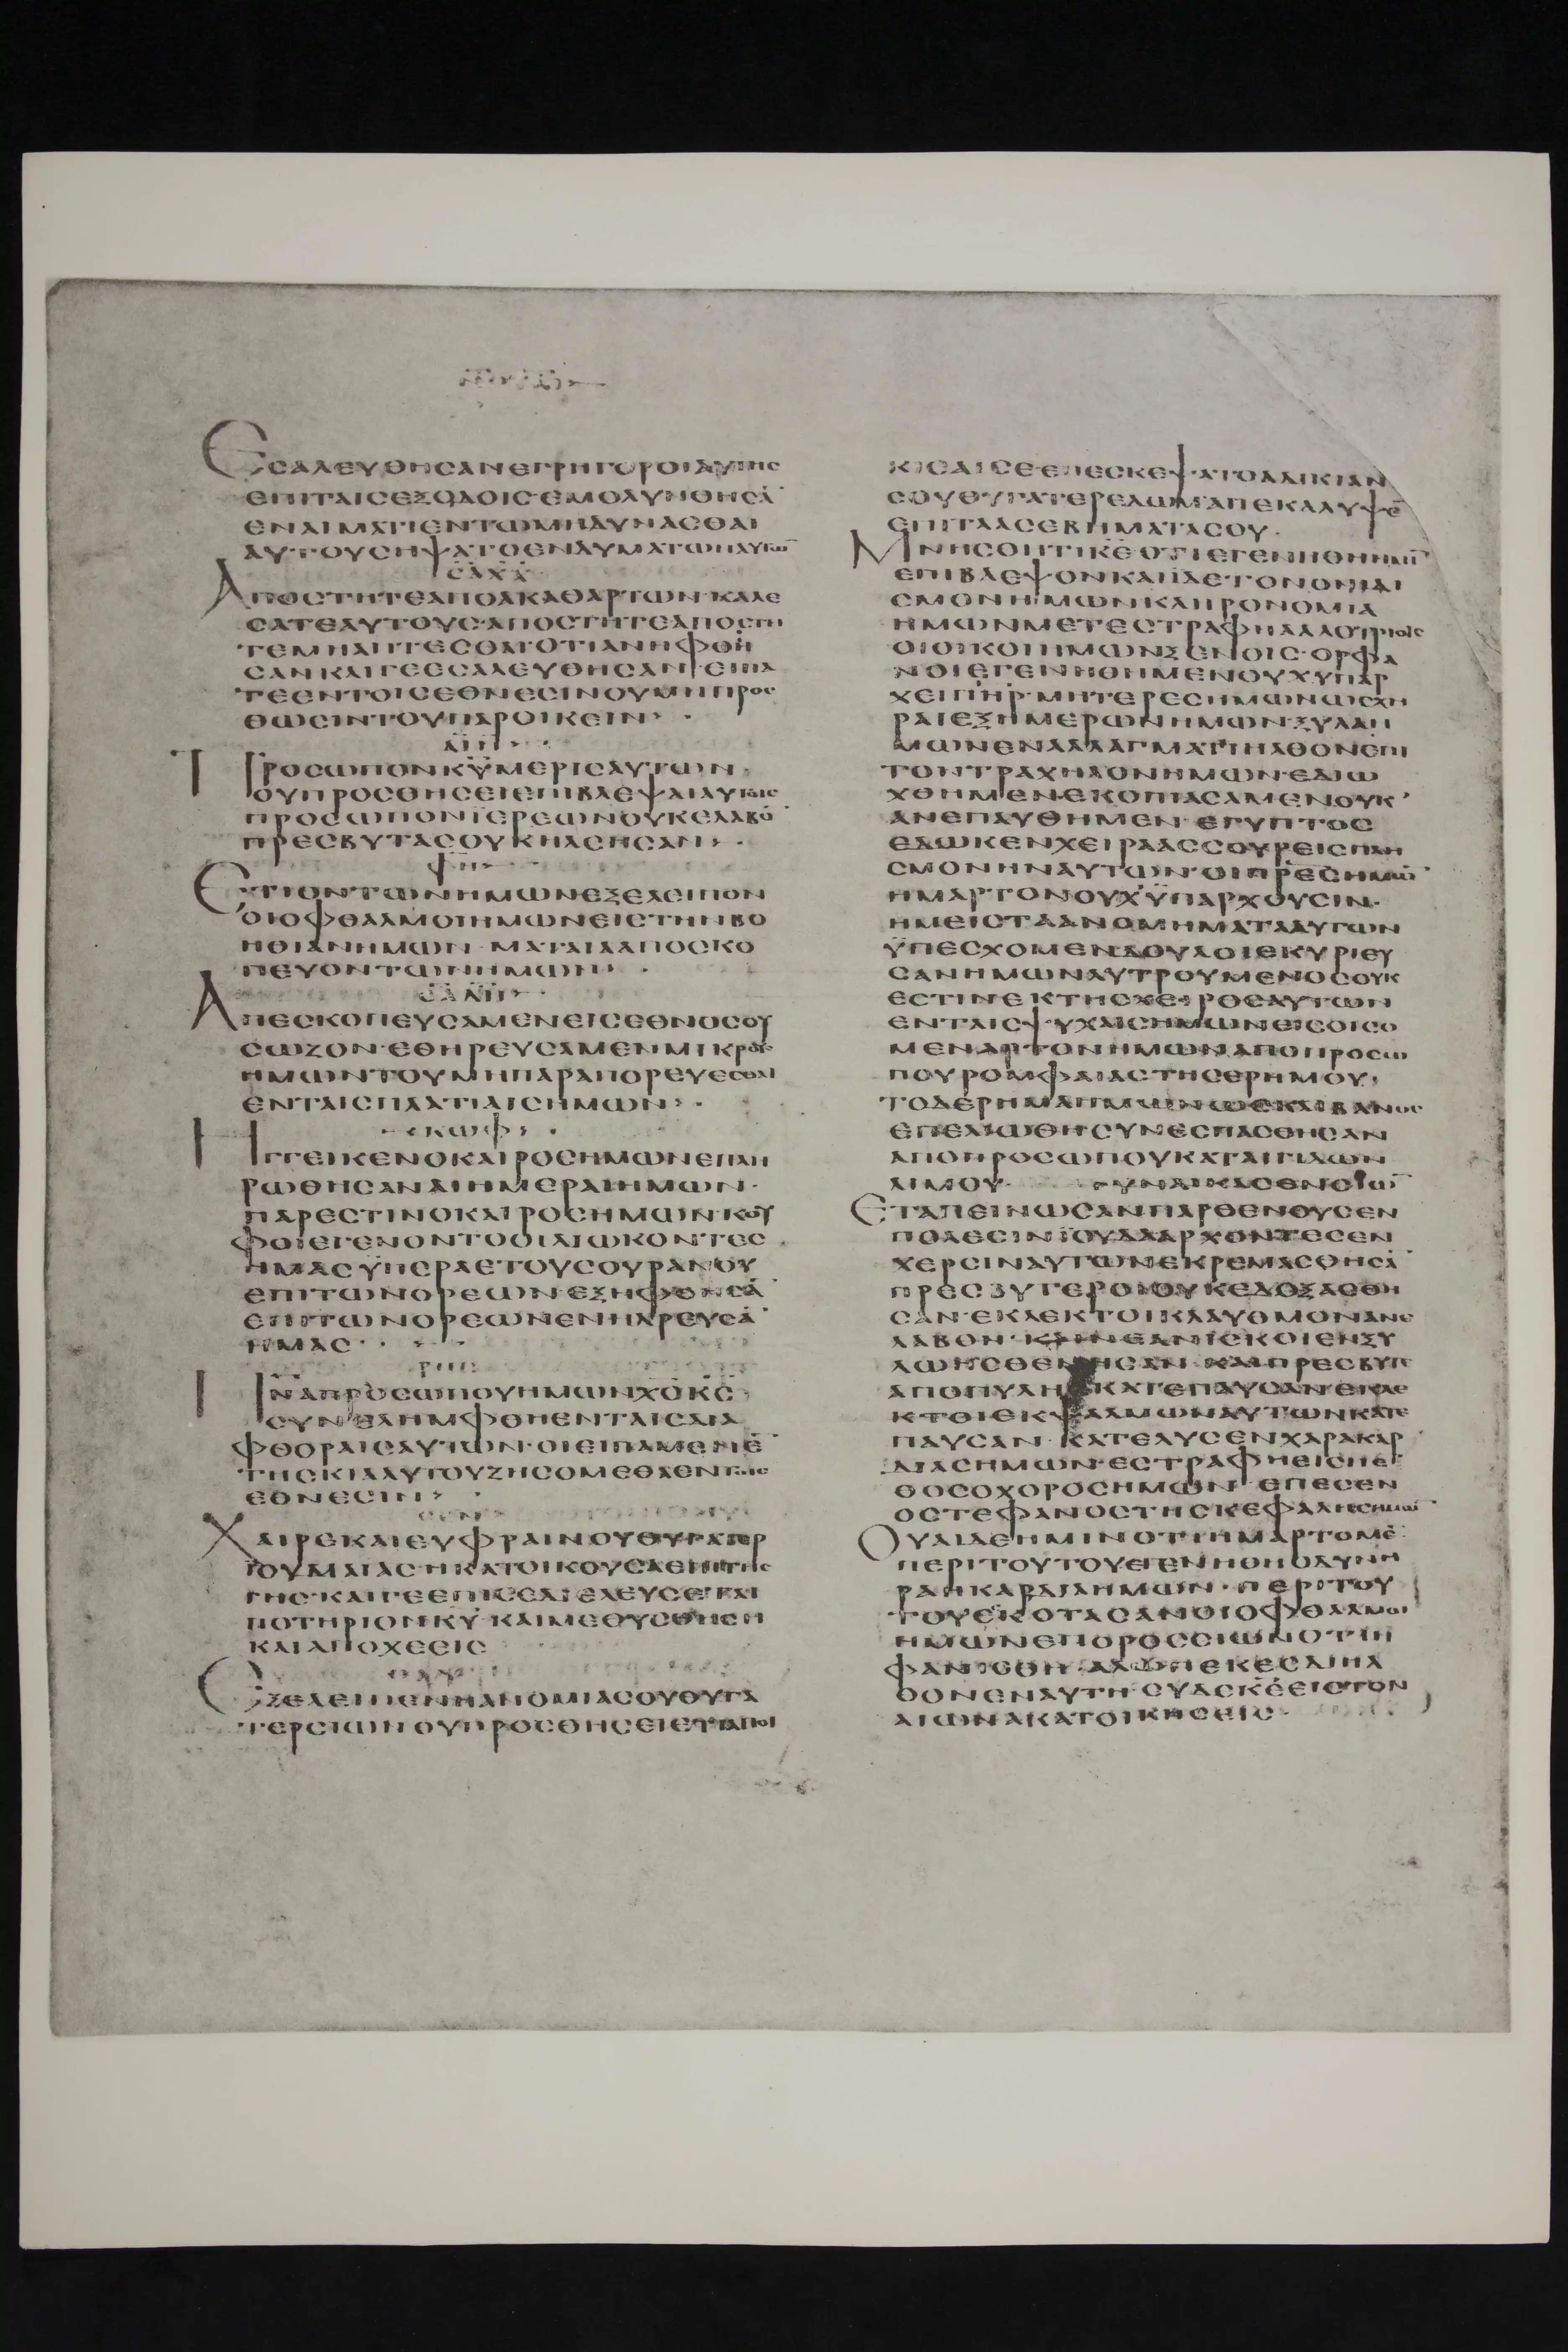 ΕCΑΛΕΥΘΗCΑΝΕΓΡΗΓΟΡΟΙΑΥΤΗC
ΕΠΙΤΑΙCΕΞΟΔΟΙC·ΕΜΟΛΥΝΘΗCΑ̅
ΕΝΑΙΜΑΤΙΕΝΤΩΜΗΔΥΝΑCΘΑΙ
ΑΥΤΟΥCΗΨΑΤΟΕΝΔΥΜΑΤΩΝΑΥΤΩ̅
CΑΧΧ
ΑΠΟCΤΗΤΕΑΠΟΑΚΑΘΑΡΤΩΝ·ΚΑΛΕ
CΑΤΕΑΥΤΟΥC·ΑΠΟCΤΗΤΕΑΠΟCΤΗ
ΤΕΜΗΑΠΤΕCΘΑΙΟΤΙΑΝΗΦΘΗ
CΑΝΚΑΙΓΕΕCΑΛΕΥΘΗCΑΝ·ΕΙΠΑ
ΤΕΕΝΤΟΙCΕΘΝΕCΙΝΟΥΜΗΠΡΟC
ΘΩCΙΝΤΟΥΠΑΡΟΙΚΕΙΝ
ΑΙΝ
ΠΡΟCΩΠΟΝΚΥΜΕΡΙCΑΥΤΩΝ
ΟΥΠΡΟCΘΗCΕΙΕΠΙΒΛΕΨΑΙΑΥΤΟΙC
ΠΡΟCΩΠΟΝΙΕΡΕΩΝΟΥΚΕΛΑΒΟ̅
ΠΡΕCΒΥΤΑCΟΥΚΗΛΕΗCΑΝ
ΦΗ
ΕΤΙΟΝΤΩΝΗΜΩΝΕΞΕΛΕΙΠΟΝ
ΟΙΟΦΘΑΛΜΟΙΗΜΩΝΕΙCΤΗΝΒΟ
ΗΘΙΑΝΗΜΩΝ·ΜΑΤΑΙΑΑΠΟCΚΟ
ΠΕΥΟΝΤΩΝΗΜΩΝ
CΑΔΗ
ΑΠΕCΚΟΠΕΥCΑΜΕΝΕΙCΕΘΝΟCΟΥ
CΩΖΟΝ·ΕΘΗΡΕΥCΑΜΕΝΜΙΚΡΟΥC
ΗΜΩΝΤΟΥΜΗΠΑΡΑΠΟΡΕΥΕCΘΑΙ
ΕΝΤΑΙCΠΛΑΤΙΑΙCΗΜΩΝ
ΚΩΦ
ΗΓΓΕΙΚΕΝΟΚΑΙΡΟCΗΜΩΝΕΠΛΗ
ΡΩΘΗCΑΝΑΙΗΜΕΡΑΙΗΜΩΝ
ΠΑΡΕCΤΙΝΟΚΑΙΡΟCΗΜΩΝ·ΚΟΥ
ΦΟΙΕΓΕΝΟΝΤΟΟΙΔΙΩΚΟΝΤΕC
ΗΜΑCΥΠΕΡΑΕΤΟΥCΟΥΡΑΝΟΥ
ΕΠΙΤΩΝΟΡΕΩΝ·ΕΞΗΦΘΗCΑ̅
ΕΠΙΤΩΝΟΡΕΩΝΕΝΗΔΡΕΥCΑ̅
ΗΜΑC
ΡΗC
ΠΝΑΠΡΟCΩΠΟΥΗΜΩΝΧCΚC
CΥΝΕΛΗΜΦΘΗΕΝΤΑΙCΔΙΑ
ΦΘΟΡΑΙCΑΥΤΩΝ·ΟΙΕΙΠΑΜΕΝΕ̅
ΤΗCΚΙΑΑΥΤΟΥΖΗCΟΜΕΘΑΕΝΤΟΙC
ΕΘΝΕCΙΝ
CΕΝ
ΧΑΙΡΕΚΑΙΕΥΦΡΑΙΝΟΥΘΥΓΑΤΕΡ
ΙΟΥΜΑΙΑCΗΚΑΤΟΙΚΟΥCΑΕΠΙΤΗC
ΓΗC·ΚΑΙΓΕΕΠΙCΕΔΙΕΛΕΥCΕΤΑΙ
ΠΟΤΗΡΙΟΝΚΥ·ΚΑΙΜΕΘΥCΘΗCΗ
ΚΑΙΑΠΟΧΕΕΙC
ΘΑΥ
ΕΞΕΛΕΙΠΕΝΗΑΝΟΜΙΑCΟΥΘΥΓΑ
ΤΕΡCΙΩΝΟΥΠΡΟCΘΗCΕΙΕΤΙΑΠΟΙ
ΚΙCΑΙCΕ·ΕΠΕCΚΕΨΑΤΟΑΔΙΚΙΑΝ
CΟΥΘΥΓΑΤΕΡΕΔΩΜ·ΑΠΕΚΑΛΥΨΕ̅
ΕΠΙΤΑΑCΕΒΗΜΑΤΑCΟΥ
ΜΝΗCΘΗΤΙΚΕΟΤΙΕΓΕΝΗΘΗΗΜΙ̅
ΕΠΙΒΛΕΨΟΝΚΑΙΙΔΕΤΟΝΟΝΙΔΙ
CΜΟΝΗΜΩΝΚΛΗΡΟΝΟΜΙΑ
ΗΜΩΝΜΕΤΕCΤΡΑΦΗΑΛΛΟΤΡΙΟΙC
ΟΙΟΙΚΟΙΗΜΩΝΞΕΝΟΙC·ΟΡΦΑ
ΝΟΙΕΓΕΝΗΘΗΜΕΝΟΥΧΥΠΑΡ
ΧΕΙΠΗΡ·ΜΗΤΕΡΕCΗΜΩΝΩCΧΗ
ΡΑΙΕΞΗΜΕΡΩΝΗΜΩΝ·ΞΥΛΑΗ
ΜΩΝΕΝΑΛΛΑΓΜΑΤΙΗΛΘΟΝΕΠΙ
ΤΟΝΤΡΑΧΗΛΟΝΗΜΩΝ·ΕΔΙΩ
ΧΘΗΜΕΝ·ΕΚΟΠΙΑCΑΜΕΝΟΥΚ
ΑΝΕΠΑΥΘΗΜΕΝ·ΕΓΥΠΤΟC
ΕΔΩΚΕΝΧΕΙΡΑΑCCΟΥΡΕΙCΠΛΗ
CΜΟΝΗΝΑΥΤΩΝ·ΟΙΠΡΕCΗΜΩ̅
ΗΜΑΡΤΟΝΟΥΧΥΠΑΡΧΟΥCΙΝ·
ΗΜΕΙCΤΑΑΝΟΜΗΜΑΤΑΑΥΤΩΝ
ΥΠΕCΧΟΜΕΝΔΟΥΛΟΙΕΚΥΡΙΕΥ
CΑΝΗΜΩΝΛΥΤΡΟΥΜΕΝΟCΟΥΚ
ΕCΤΙΝΕΚΤΗCΧΕΙΡΟCΑΥΤΩΝ
ΕΝΤΑΙCΨΥΧΑΙCΗΜΩΝΕΙCΟΙCΟ
ΜΕΝΑΡΤΟΝΗΜΩΝΑΠΟΠΡΟCΩ
ΠΟΥΡΟΜΦΑΙΑCΤΗCΕΡΗΜΟΥ
ΤΟΔΕΡΜΑΗΜΩΝΩCΚΛΙΒΑΝΟC
ΕΠΕΛΙΩΘΗCΥΝΕCΠΑCΘΗCΑΝ
ΑΠΟΠΡΟCΩΠΟΥΚΑΤΑΙΓΙΔΩΝ
ΛΙΜΟΥ ΓΥΝΑΙΚΑCΕΝCΙΩ̅
ΕΤΑΠΕΙΝΩCΑΝΠΑΡΘΕΝΟΥCΕΝ
ΠΟΛΕCΙΝΙΟΥΔΑΑΡΧΟΝΤΕCΕΝ
ΧΕΡCΙΝΑΥΤΩΝΕΚΡΕΜΑCΘΗCΑ̅
ΠΡΕCΒΥΤΕΡΟΙΟΥΚΕΔΟΞΑCΘΗ
CΑΝ·ΕΚΛΕΚΤΟΙΚΛΑΥΘΜΟΝΑΝΕ
ΛΑΒΟΝ·ΚΑΙΝΕΑΝΙCΚΟΙΕΝΞΥ
ΛΩΗCΘΕΝΗCΑΝ·ΚΑΙΠΡΕCΒΥΤΕ
ΑΠΟΠΥΛΗCΚΑΤΕΠΑΥCΑΝ·ΕΚΛΕ
ΚΤΟΙΕΚΨΑΛΜΩΝΑΥΤΩΝΚΑΤΕ
ΠΑΥCΑΝ·ΚΑΤΕΛΥCΕΝΧΑΡΑΚΑΡ
ΔΙΑCΗΜΩΝ·ΕCΤΡΑΦΗΕΙCΠΕ̅
ΘΟCΟΧΟΡΟCΗΜΩΝ·ΕΠΕCΕΝ
ΟCΤΕΦΑΝΟCΤΗCΚΕΦΑΛΗCΗΜΩ̅
ΟΥΑΙΔΕΗΜΙΝΟΤΙΗΜΑΡΤΟΜΕ̅
ΠΕΡΙΤΟΥΤΟΥΕΓΕΝΗΘΗΟΔΥΝΗ
ΡΑΗΚΑΡΔΙΑΗΜΩΝ·ΠΕΡΙΤΟΥ
ΤΟΥΕCΚΟΤΑCΑΝΟΙΟΦΘΑΛΜΟΙ
ΗΜΩΝΕΠΟΡΟCCΙΩΝΟΤΙΗ
ΦΑΝΙCΘΗ·ΑΛΩΠΕΚΕCΔΙΗΛ
ΘΟΝΕΝΑΥΤΗ·CΥΔΕΚΕΕΙCΤΟΝ
ΑΙΩΝΑΚΑΤΟΙΚΗCΕΙC